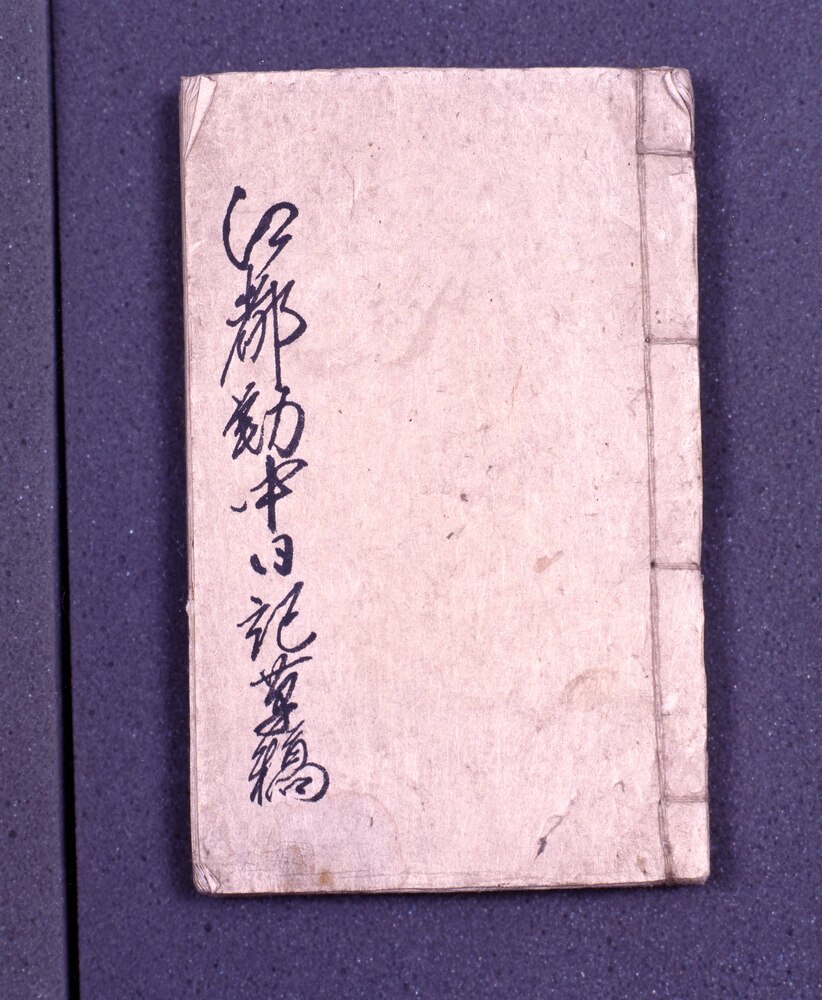 江都勤中日記草稿